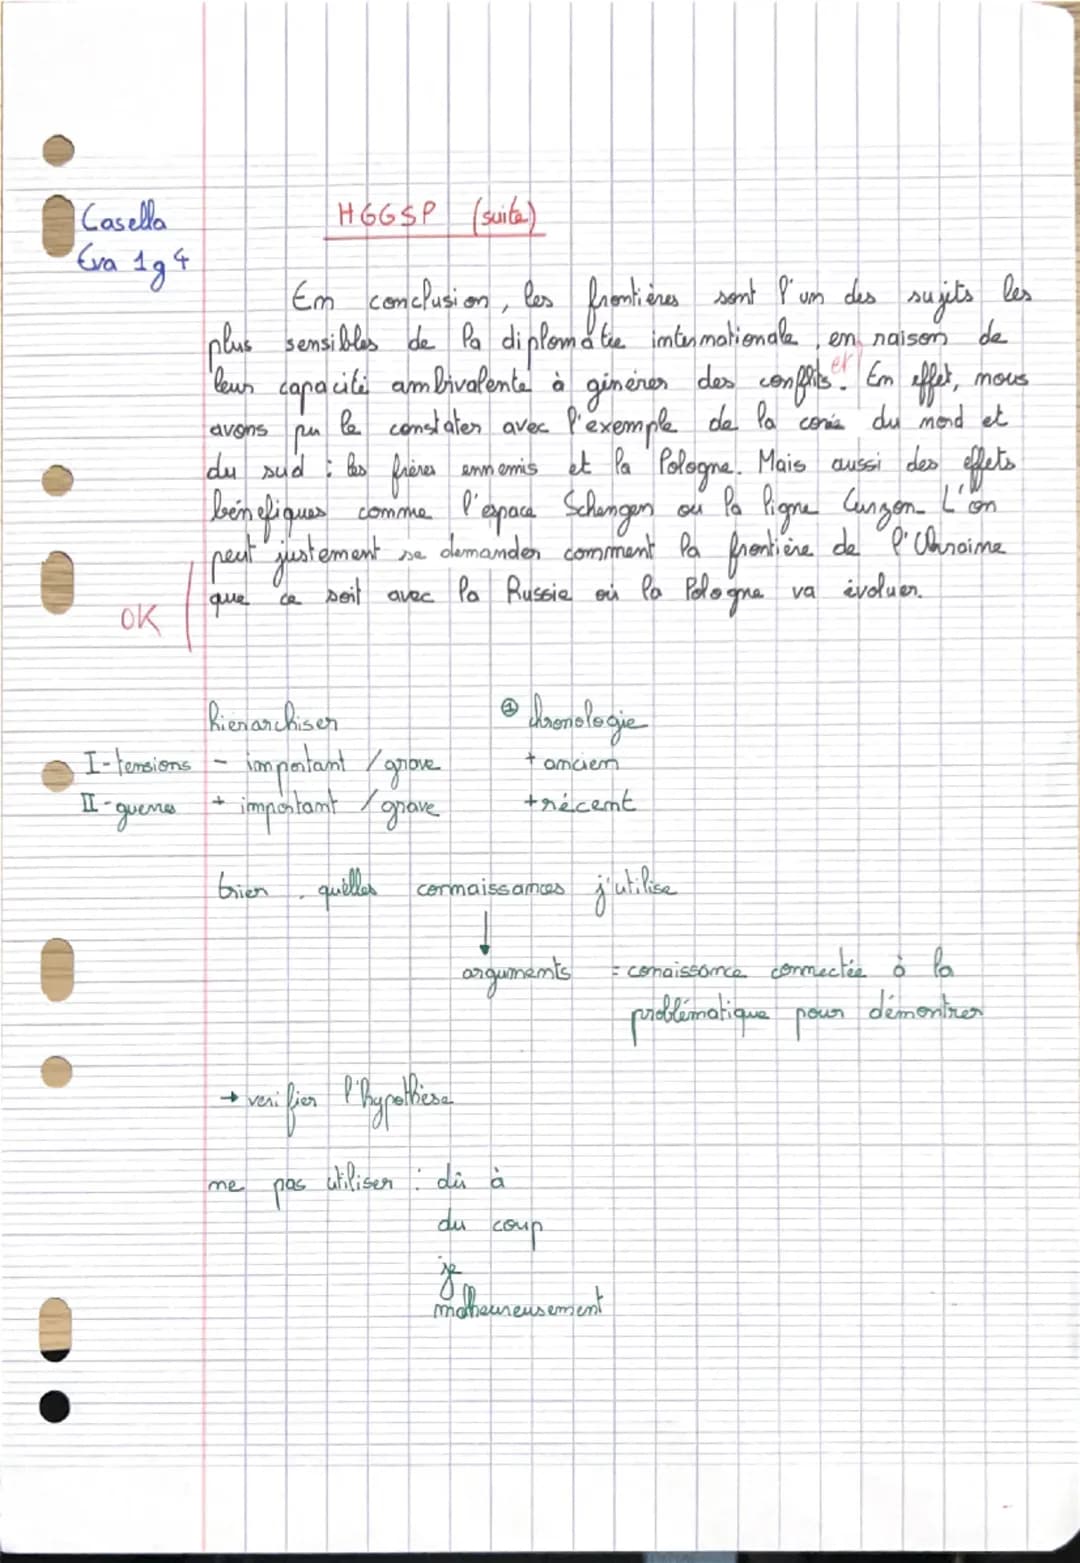 Casella
Eva 1g4
HGGSP (suite)
En conclusion, les frontières sont l'un des sujets les
plus sensibles de la diplomatie internationale, en raison de
leur capacité ambivalente à générer des conflits. et En effet, nous
avons pu le constater avec l'exemple de la corée du nord et
du sud : les frères ennemis et la Pologne. Mais aussi des effets
bénéfiques comme l'espace Schengen ou la ligne Curzon. L'on
peut justement se demander comment la frontière de l'Ukraine
que ce soit avec la Russie où la Pologne va évoluer.
OK
hierarchiser
⊕ chronologie
I-tensions - important / grave + ancien
II-guerres + important / grave + récent
trier, quelles connaissances j'utilise
↓
arguments = conaissance connectée à la
problématique pour démontrer
→ verifier l'hypothèse
ne pas utiliser : dû à
du coup
je
malheureusement